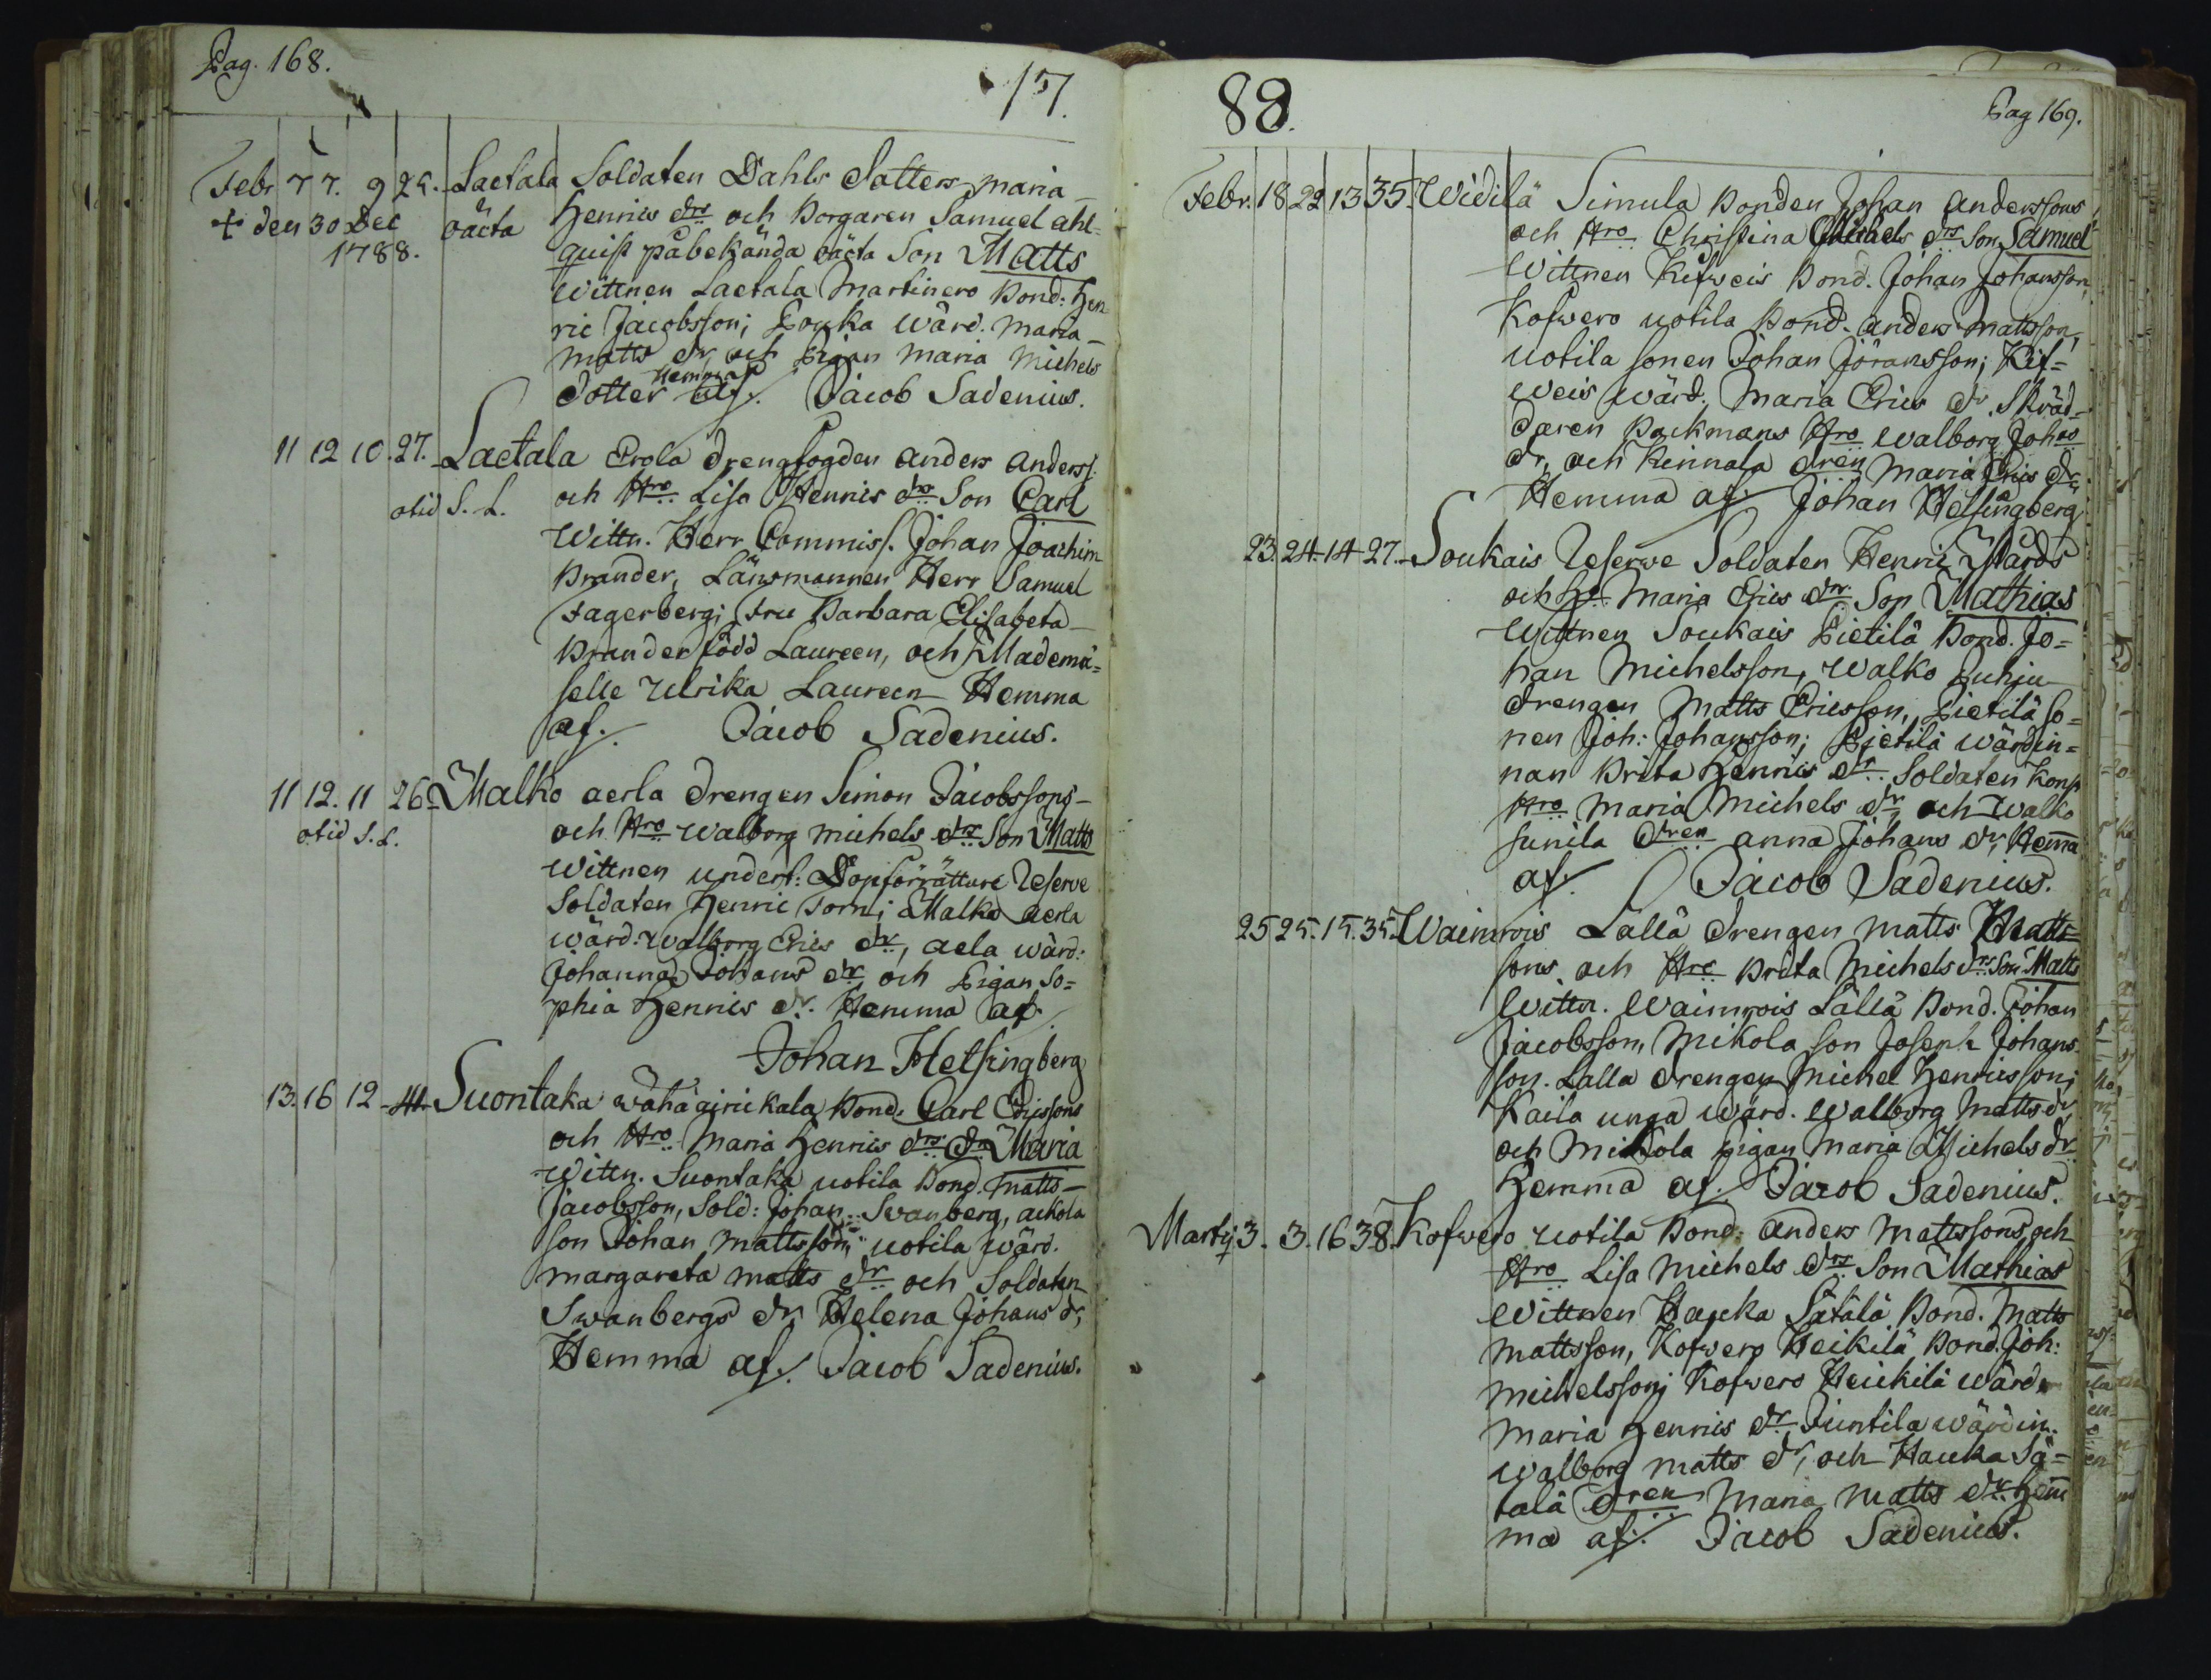 Pag. 168.
17.
Febr 7 7. 9 25. Laetala Soldaten Dahls Datters Maria
+ den 30 Dec oäcta Henrics drs och Borgaren Samuel Ahl=
1788. quist påbekända oäcta Son Matts
Wittnen Laetala Martinero Bond: Hen
ric Jacobsson; Pouka Wärd. Maria
Matts dr och Pigan Maria Michels
Dotter Hemma af. Jacob Sadenius.
11 12 10. 27. Laetala Erola Drengfogden Anders Anderss.
otid S. L. och Hro Lisa Henrics drs Son Carl
Wittn. Herr Commiss. Johan Joachim
Brander, Länsmannen Herr Samuel
Fagerberg; Fru Barbara Elisabeta
Brander född Laureen, och Madema=
selle Ulrika Laureen Hemma
af. Jacob Sadenius.
11 12. 11 26 Malko Aerla Drengen Simon Jacobssons
otid S. L. och Hro Walborg Michels drs Son Matts
Wittnen undert: Dopförrättare Reserve
Soldaten Henric Torn; Malko Aerla
Wärd: Walborg Erics dr, Aela Wärd:
Johanna Johans dr och Pigan So=
phia Henrics dr. Hemma af.
Johan Helsingberg
13. 16 12 41 Suontaka Wähääirikala Bond: Carl Ericssons
och Hro Maria Henrics drs dr Maria
Wittn. Suontaka Uotila Bond. Matts
Jacobsson, Sold: Johan Svanberg, Ackola
Son Johan Mattsson; Uotila Wärd.
Margareta Matts dr och Soldaten
Swanbergs dr Helena Johans dr,
Hemma af. Jacob Sadenius.
88.
Pag 169.
Febr. 18 22 13 35. Widilä Simula Bonden Johan Anderssons
och Hro Christina Michels drs Son Samuel
Wittnen Kifweis Bond. Johan Johansson,
Kofwero Uotila Bond. Anders Mattsson,
Uotila Sonen Johan Jöransson; Kif=
weis Wärd. Maria Erics dr. Skräd=
daren Backmans Hro Walborg Johns
dr, och Kinnala dren Maria Erics dr
Hemma af Johan Helsingberg
23. 24. 14 27. Soukais Reserwe Soldaten Henric Wårds
och Ho. Maria Erics drs Son Mathias
Wittnen Soukais Pietilä Bond. Jo=
han Michelsson, Walko Juhju
Drengen Matts Ericsson, Pietilä So=
nen Joh: Johansson; Pietilä Wärdin=
nan Brita Henrics dr. Soldaten Konp
Hro Maria Michels dr, och Walko
Junila dren Anna Johans dr, Hema
af. Jacob Sadenius.
25 25. 15. 35. Waimrois Lallä Drengen Matts Matts=
sons och Hro Brita Michels drs Son Matts
Wittn. Waimrois Lällä Bond. Johan
Jacobsson, Mikola Son Joseph Johans
son. Lalla Drengen Michel Henricsson;
Kaila unga Wärd. Walborg Matts dr,
och Mikkola Pigan Maria Michels dr
Hemma af. Jacob Sadenius.
Martij 3. 3. 16 38. Kofwero Uotila Bond: Anders Mattssons och
Hro Lisa Michels drs Son Mathias
Wittnen Hauka Sätälä Bond. Matts
Mattsson, Kofwero Heikilä Bond. Joh:
Michelsson; Kofwero Heickilä Wärd
Maria Henrics dr, Juntila Wärdin.
Walborg Matts dr, och Hauka Sä=
talä dren Maria Matts dr Hem
ma af. Jacob Sadenius.